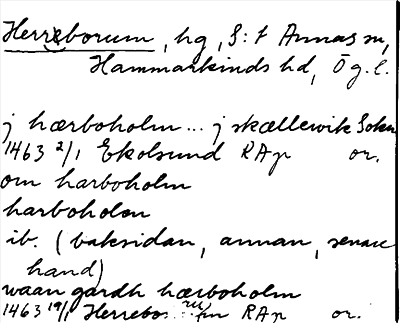 Herreborum, hg, S:t Annas sn,
Hammarkinds hd, Ög.l.
j hærboholm... j skællewik Sokn
1463 2/1 Ekolsund RAp or.
om harboholm
harboholm
ib. (baksidan, annan, senare
hand)
waan gardh hærboholm
1463 19/1 RAp or.